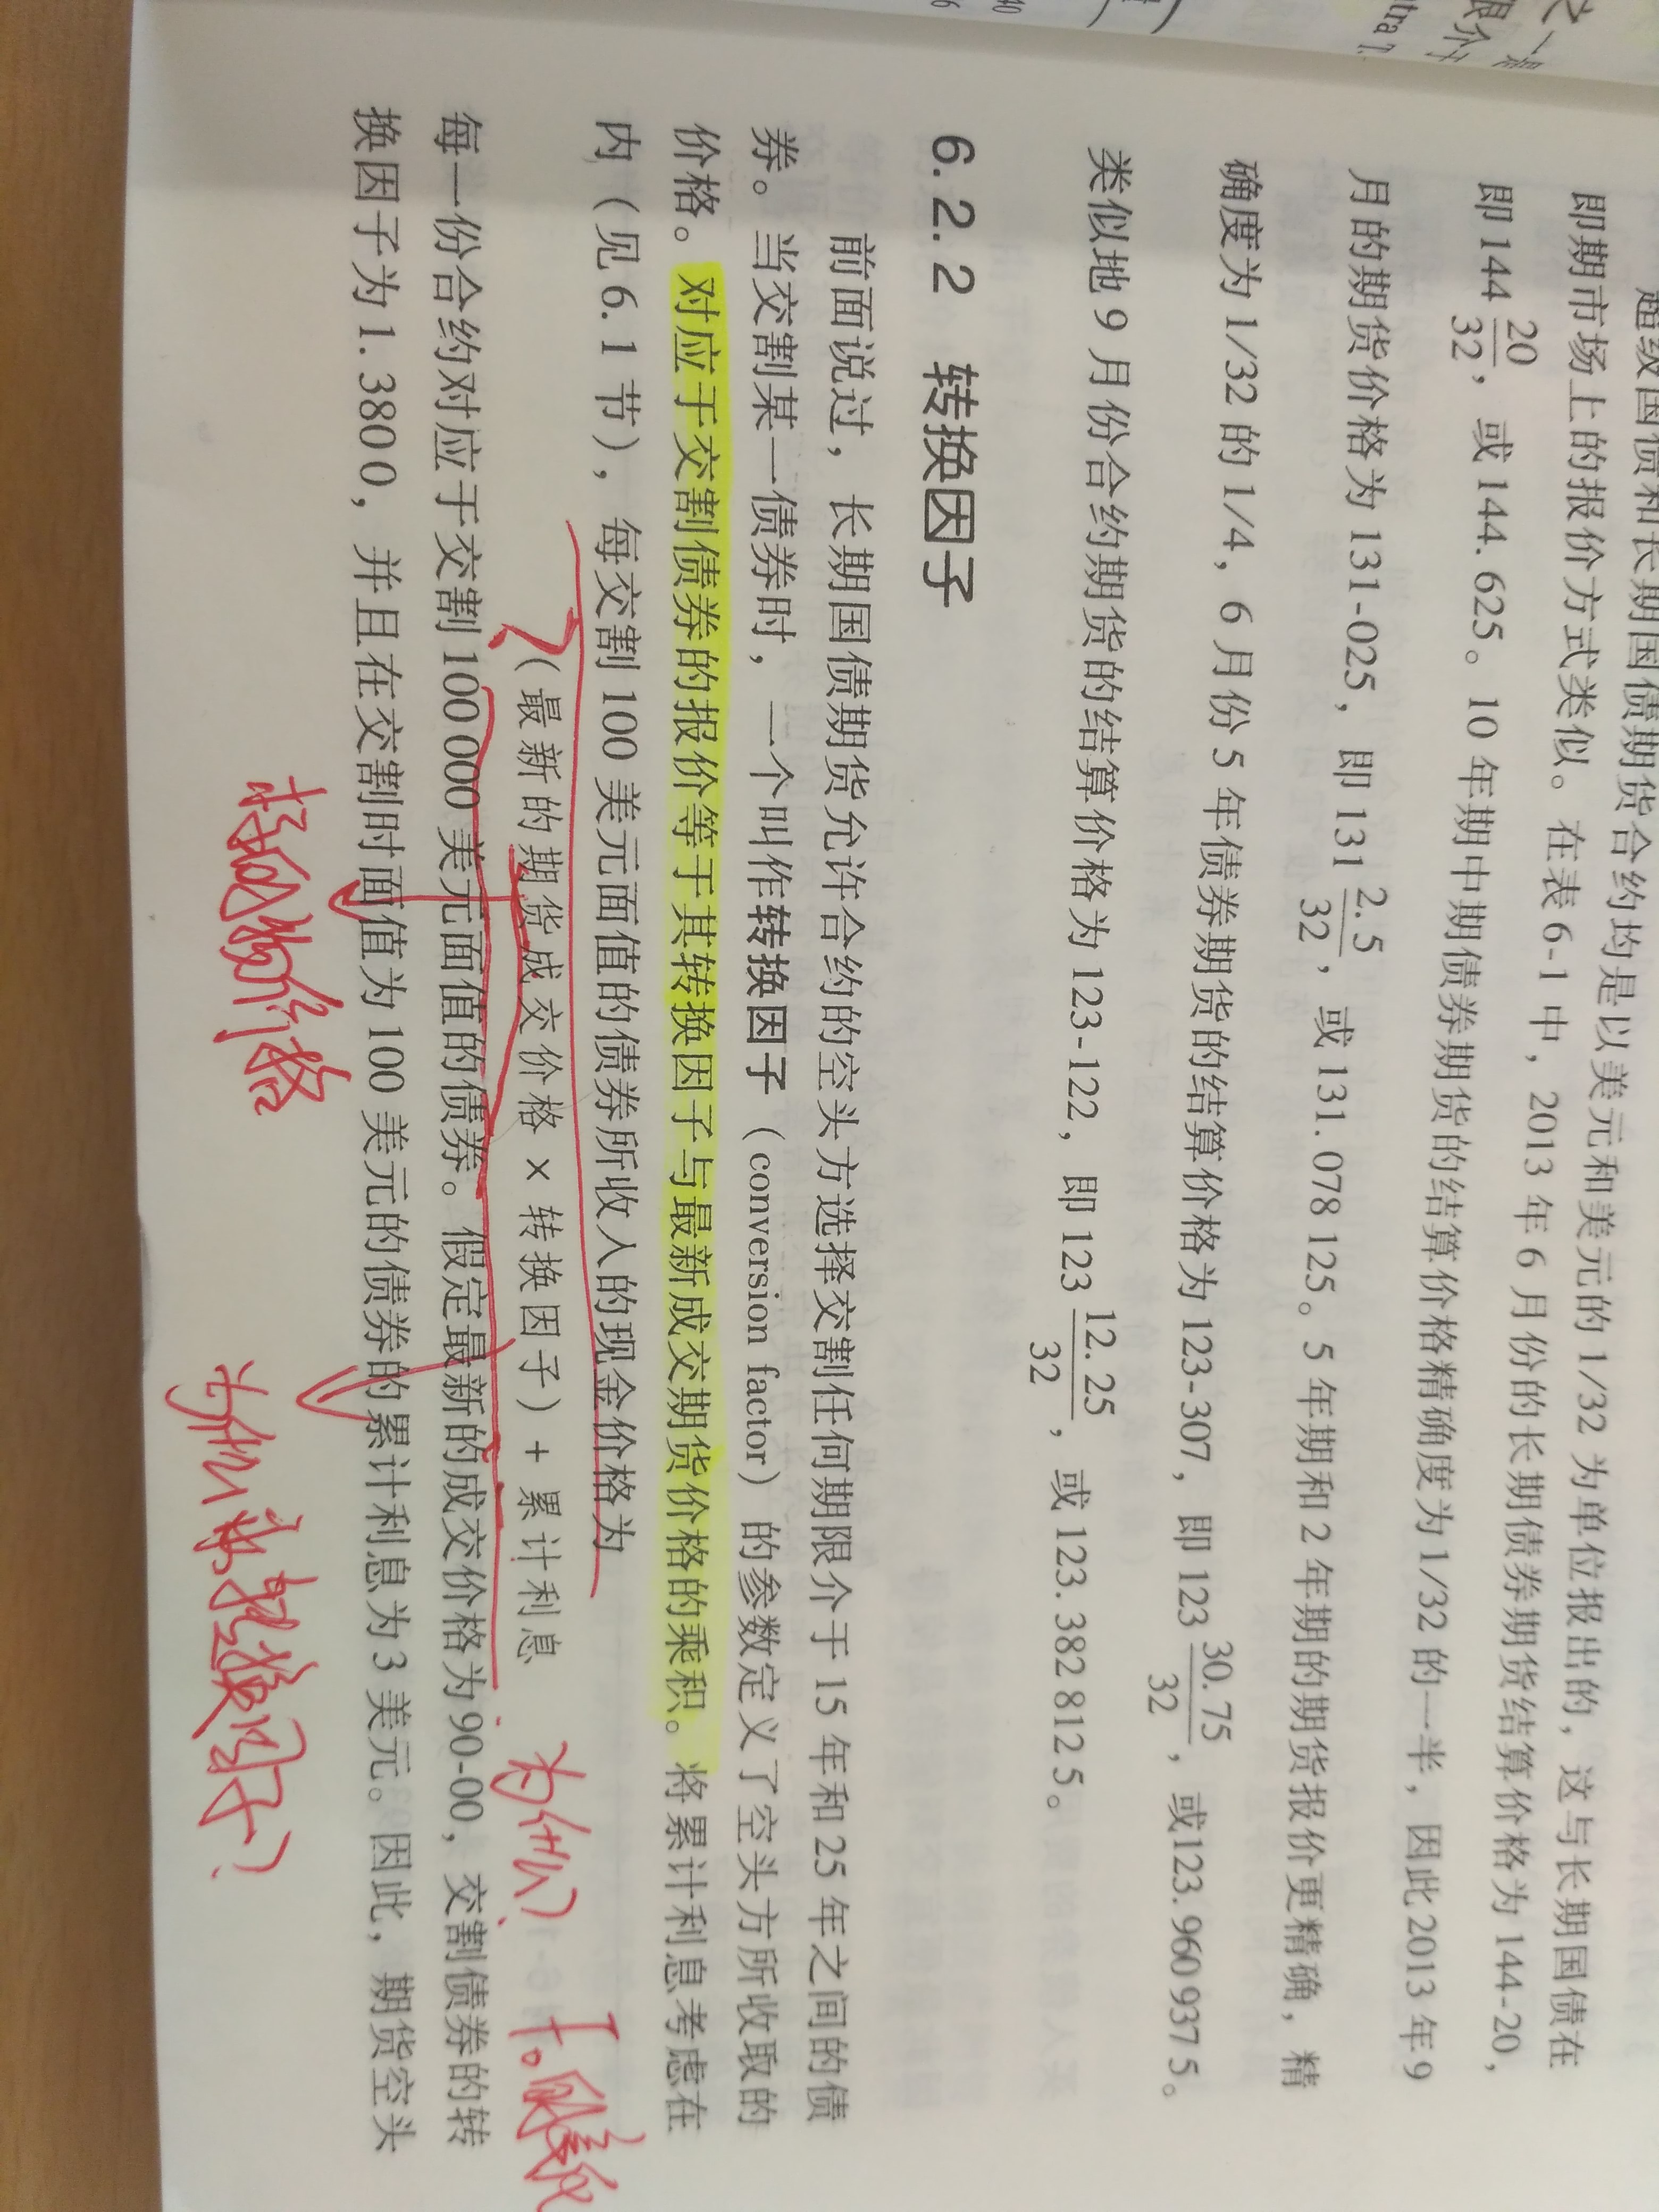 超级国债和长期国债期货合约均是以美元和美元的 1/32 为单位报出的，这与长期国债在
即期市场上的报价方式类似。在表 6-1 中，2013 年 6 月份的长期债券期货结算价格为 144-20，
即 144 20/32，或 144.625。10 年期中期债券期货的结算价格精确度为 1/32 的一半，因此 2013 年 9
月的期货价格为 131-025，即 131 2.5/32，或 131.078 125。5 年期和 2 年期的期货报价更精确，精
确度为 1/32 的 1/4，6 月份 5 年债券期货的结算价格为 123-307，即 123 30.75/32，或123.960 937 5。
类似地 9 月份合约期货的结算价格为 123-122，即 123 12.25/32，或 123.382 812 5。
6.2.2 转换因子
前面说过，长期国债期货允许合约的空头方选择交割任何期限介于 15 年和 25 年之间的债
券。当交割某一债券时，一个叫作转换因子（conversion factor）的参数定义了空头方所收取的
价格。对应于交割债券的报价等于其转换因子与最新成交期货价格的乘积。将累计利息考虑在
内（见 6.1 节），每交割 100 美元面值的债券所收入的现金价格为
（最新的期货成交价格 × 转换因子）+ 累计利息
为什么？
每一份合约对应于交割 100 000 美元面值的债券。假定最新的成交价格为 90-00，交割债券的转
换因子为 1.380 0，并且在交割时面值为 100 美元的债券的累计利息为 3 美元。因此，期货空头
价格
为什么要乘转换因子？